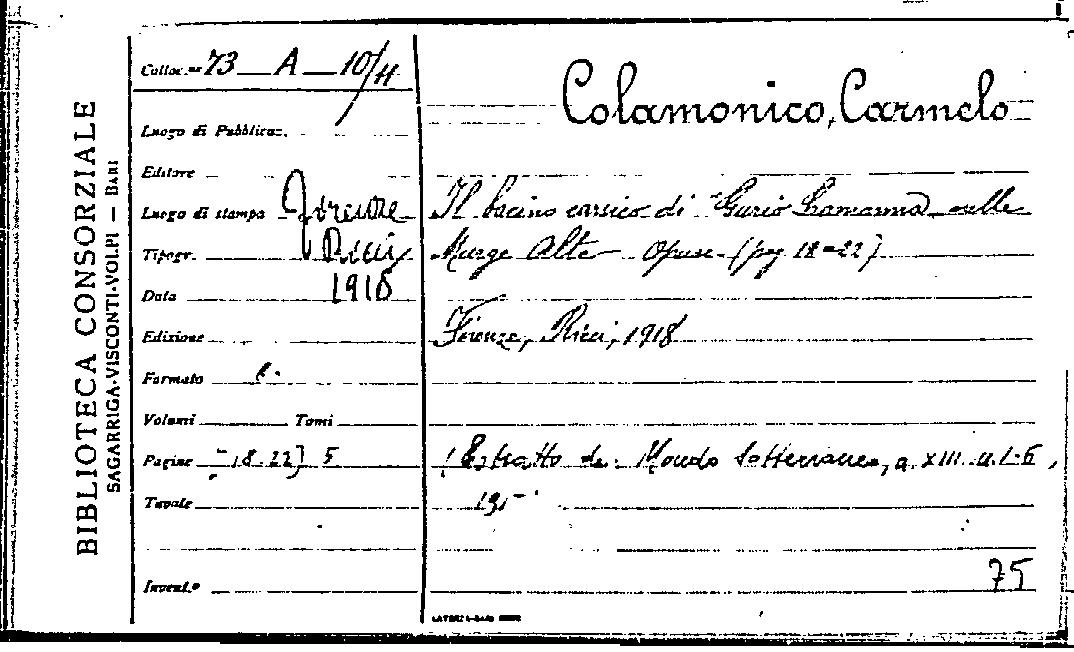 BIBLIOTECA CONSORZIALE
SAGARRIGA-VISCONTI-VOLPI — BARI
Colloc.ne 73 A 10/11
Luogo di Pubblicaz.
Editore
Luogo di stampa Firenze
Tipogr. Ricci
Data 1918
Edizione
Formato
Volumi Tomi
Pagine [18-22] 5
Tavole
Invent.º
Colamonico, Carmelo
Il bacino carsico di Gurio Lamanna sulle
Murge Alte Opusc. (pag 18-22)
Firenze, Ricci, 1918
(Estratto da: Mondo Sotterraneo, a. XIII n. 1-6,
75
LATERZA-BARI